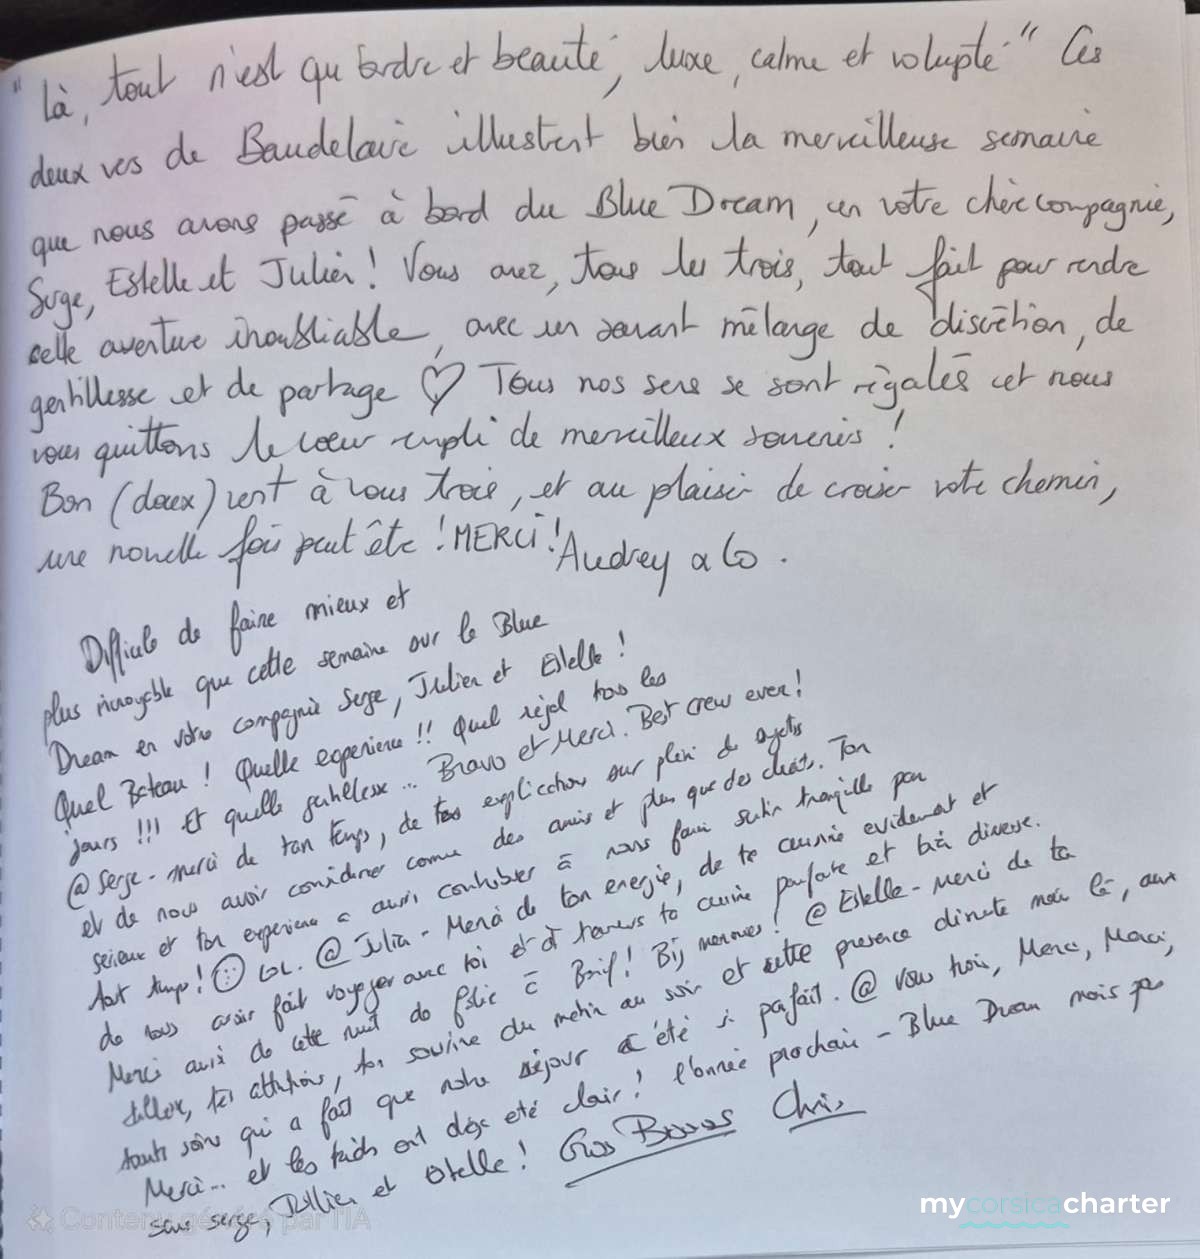 "là, tout n'est qu'ordre et beauté, luxe, calme et volupté." Ces
deux vers de Baudelaire illustrent bien la merveilleuse semaine
que nous avons passé à bord du Blue Dream, en votre chère compagnie,
Serge, Estelle et Julien! Vous avez, tous les trois, tout fait pour rendre
cette aventure inoubliable, avec un savant mélange de discrétion, de
gentillesse et de partage ♡ Tous nos sens se sont régalés et nous
vous quittons le coeur empli de merveilleux souvenirs!
Bon (doux) vent à vous trois, et au plaisir de croiser votre chemin,
une nouvelle fois peut être! MERCI! Audrey & Co.
Difficile de faire mieux et
plus incroyable que cette semaine sur le Blue
Dream en votre compagnie Serge, Julien et Estelle!
Quel Bateau! Quelle experience!! Quel régal tous les
jours!!! Et quelle gentillesse... Bravo et Merci. Best crew ever!
@ Serge - merci de ton temps, de tes explications sur plein de sujets
et de nous avoir considérer comme des amis et plus que des clients. Ton
serieux et ton experience a aussi contribuer à nous faire sentir tranquille par
tout temps! ☺ LOL. @ Julien - Merci de ton energie, de ta cuisine evidement et
de nous avoir fait voyager avec toi et à travers ta cuisine parfaite et très diverse.
Merci aussi de cette nuit de folie à Bonif! @ Estelle - Merci de ta
tes attentions, ton sourire du matin au soir et cette presence discrete mais là, aux
soins qui a fait que notre séjour a été si parfait. @ vous trois, Merci, Merci,
Merci... et les kids ont déjà été clair! l'année prochaine - Blue Dream mais pas
sans Serge, Julien et Estelle! Gros Bisous Chris
Contenu généré par l'IA
mycorsicacharter